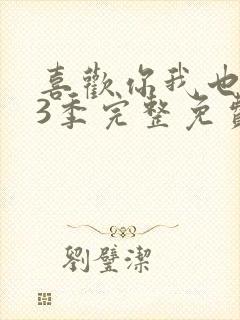 喜歡你我也
3季完整免費
劉璧潔